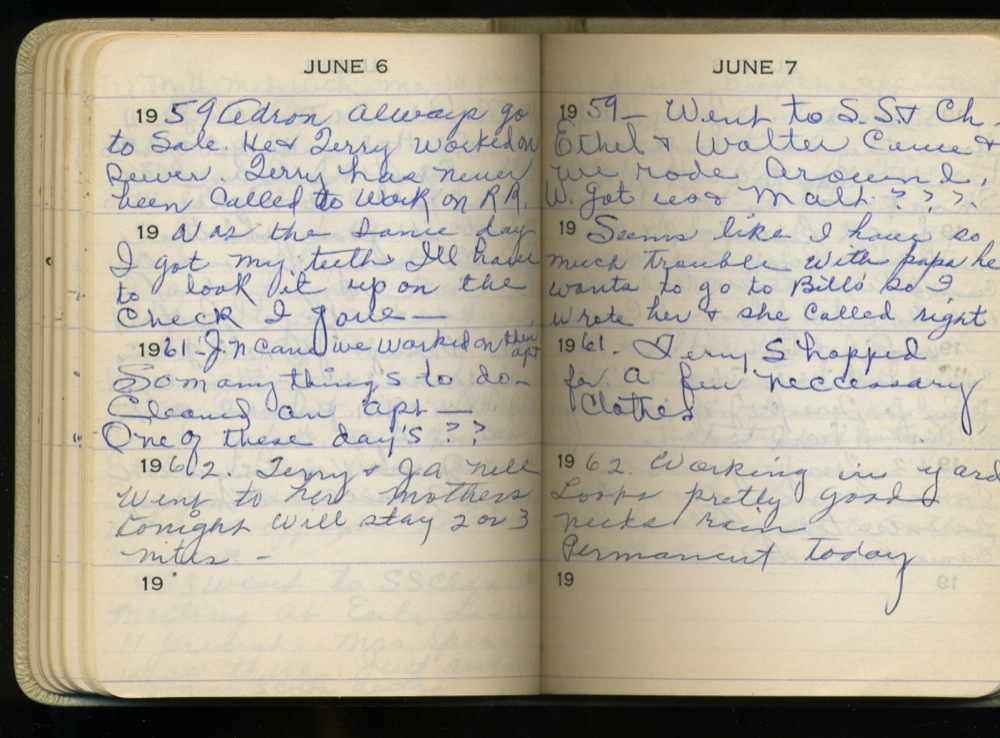 JUNE 6
1959 Adron always go
to Sale. He & Terry worked on
sewer. Terry has never
been called to work on RR.
19 Was the same day
I got my teeth I'll have
to look it up on the
check I gave —
1961 - J.N came we worked on their apt
So many thing's to do —
Cleaned an apt —
One of these day's ? ?
1962. Terry & J.A. Nell
went to her mothers
tonight will stay 2 or 3
nites —
19
JUNE 7
1959 — Went to S.S & Ch.
Ethel & Walter came &
we rode around,
W. got malt ? ? ?.
19 Seems like I have so
much trouble with papa he
wants to go to Bill's so I
wrote her & she called right
1961. Terry Shopped
for a few neccessary
Clothes
1962. Working in yard
Looks pretty good
neeks rain
Permanent today
19